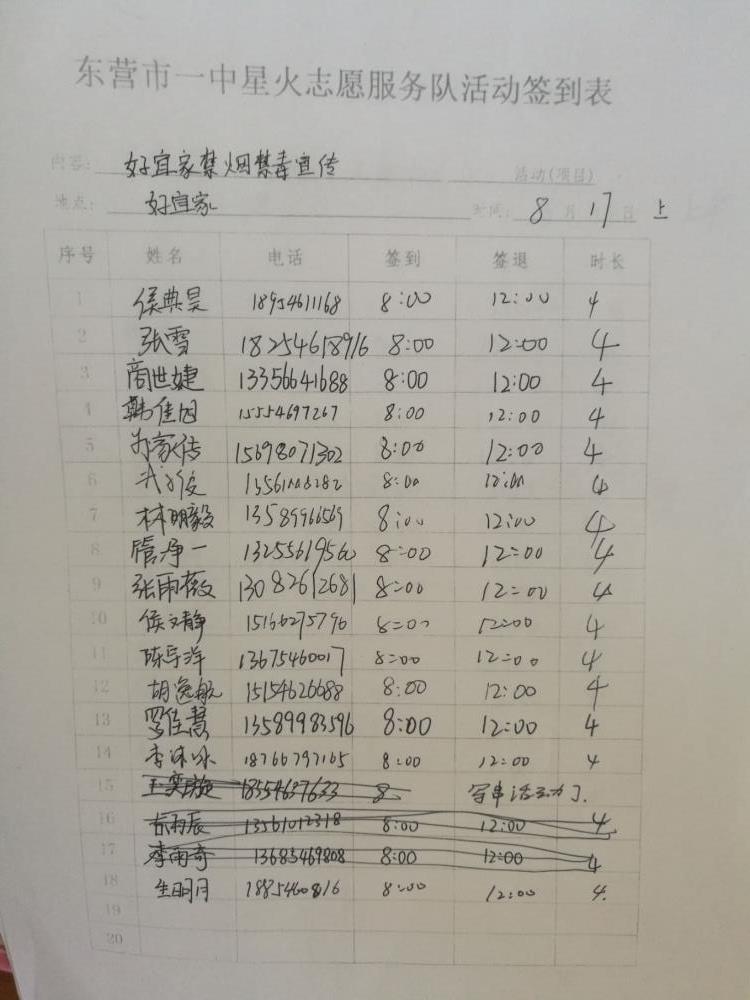 东营市一中星火志愿服务队活动签到表
内容: 好宜家禁烟禁毒宣传 活动(项目)
地点: 好宜家 时间: 8月17日 上
序号 姓名 电话 签到 签退 时长
1 侯典昊 18954611168 8:00 12:00 4
2 张雪 18254618916 8:00 12:00 4
3 商世婕 13356641688 8:00 12:00 4
4 韩佳因 15554697267 8:00 12:00 4
5 家传 15698071302 8:00 12:00 4
6 8:00 12:00 4
7 林明毅 13589966569 8:00 12:00 4
8 隋净一 13255619560 8:00 12:00 4
9 张雨薇 13082612681 8:00 12:00 4
10 侯文静 15166275796 8:00 12:00 4
11 陈导洋 13675460017 8:00 12:00 4
12 胡逸航 15154626688 8:00 12:00 4
13 罗佳慧 13589983596 8:00 12:00 4
14 李沐冰 18766797165 8:00 12:00 4
15 王奕璇 18554637633 8 写串活动了.
16 雨辰 13561012318 8:00 12:00 4
17 李雨奇 13685469808 8:00 12:00 4
18 生明月 18854600816 8:00 12:00 4.
19
20